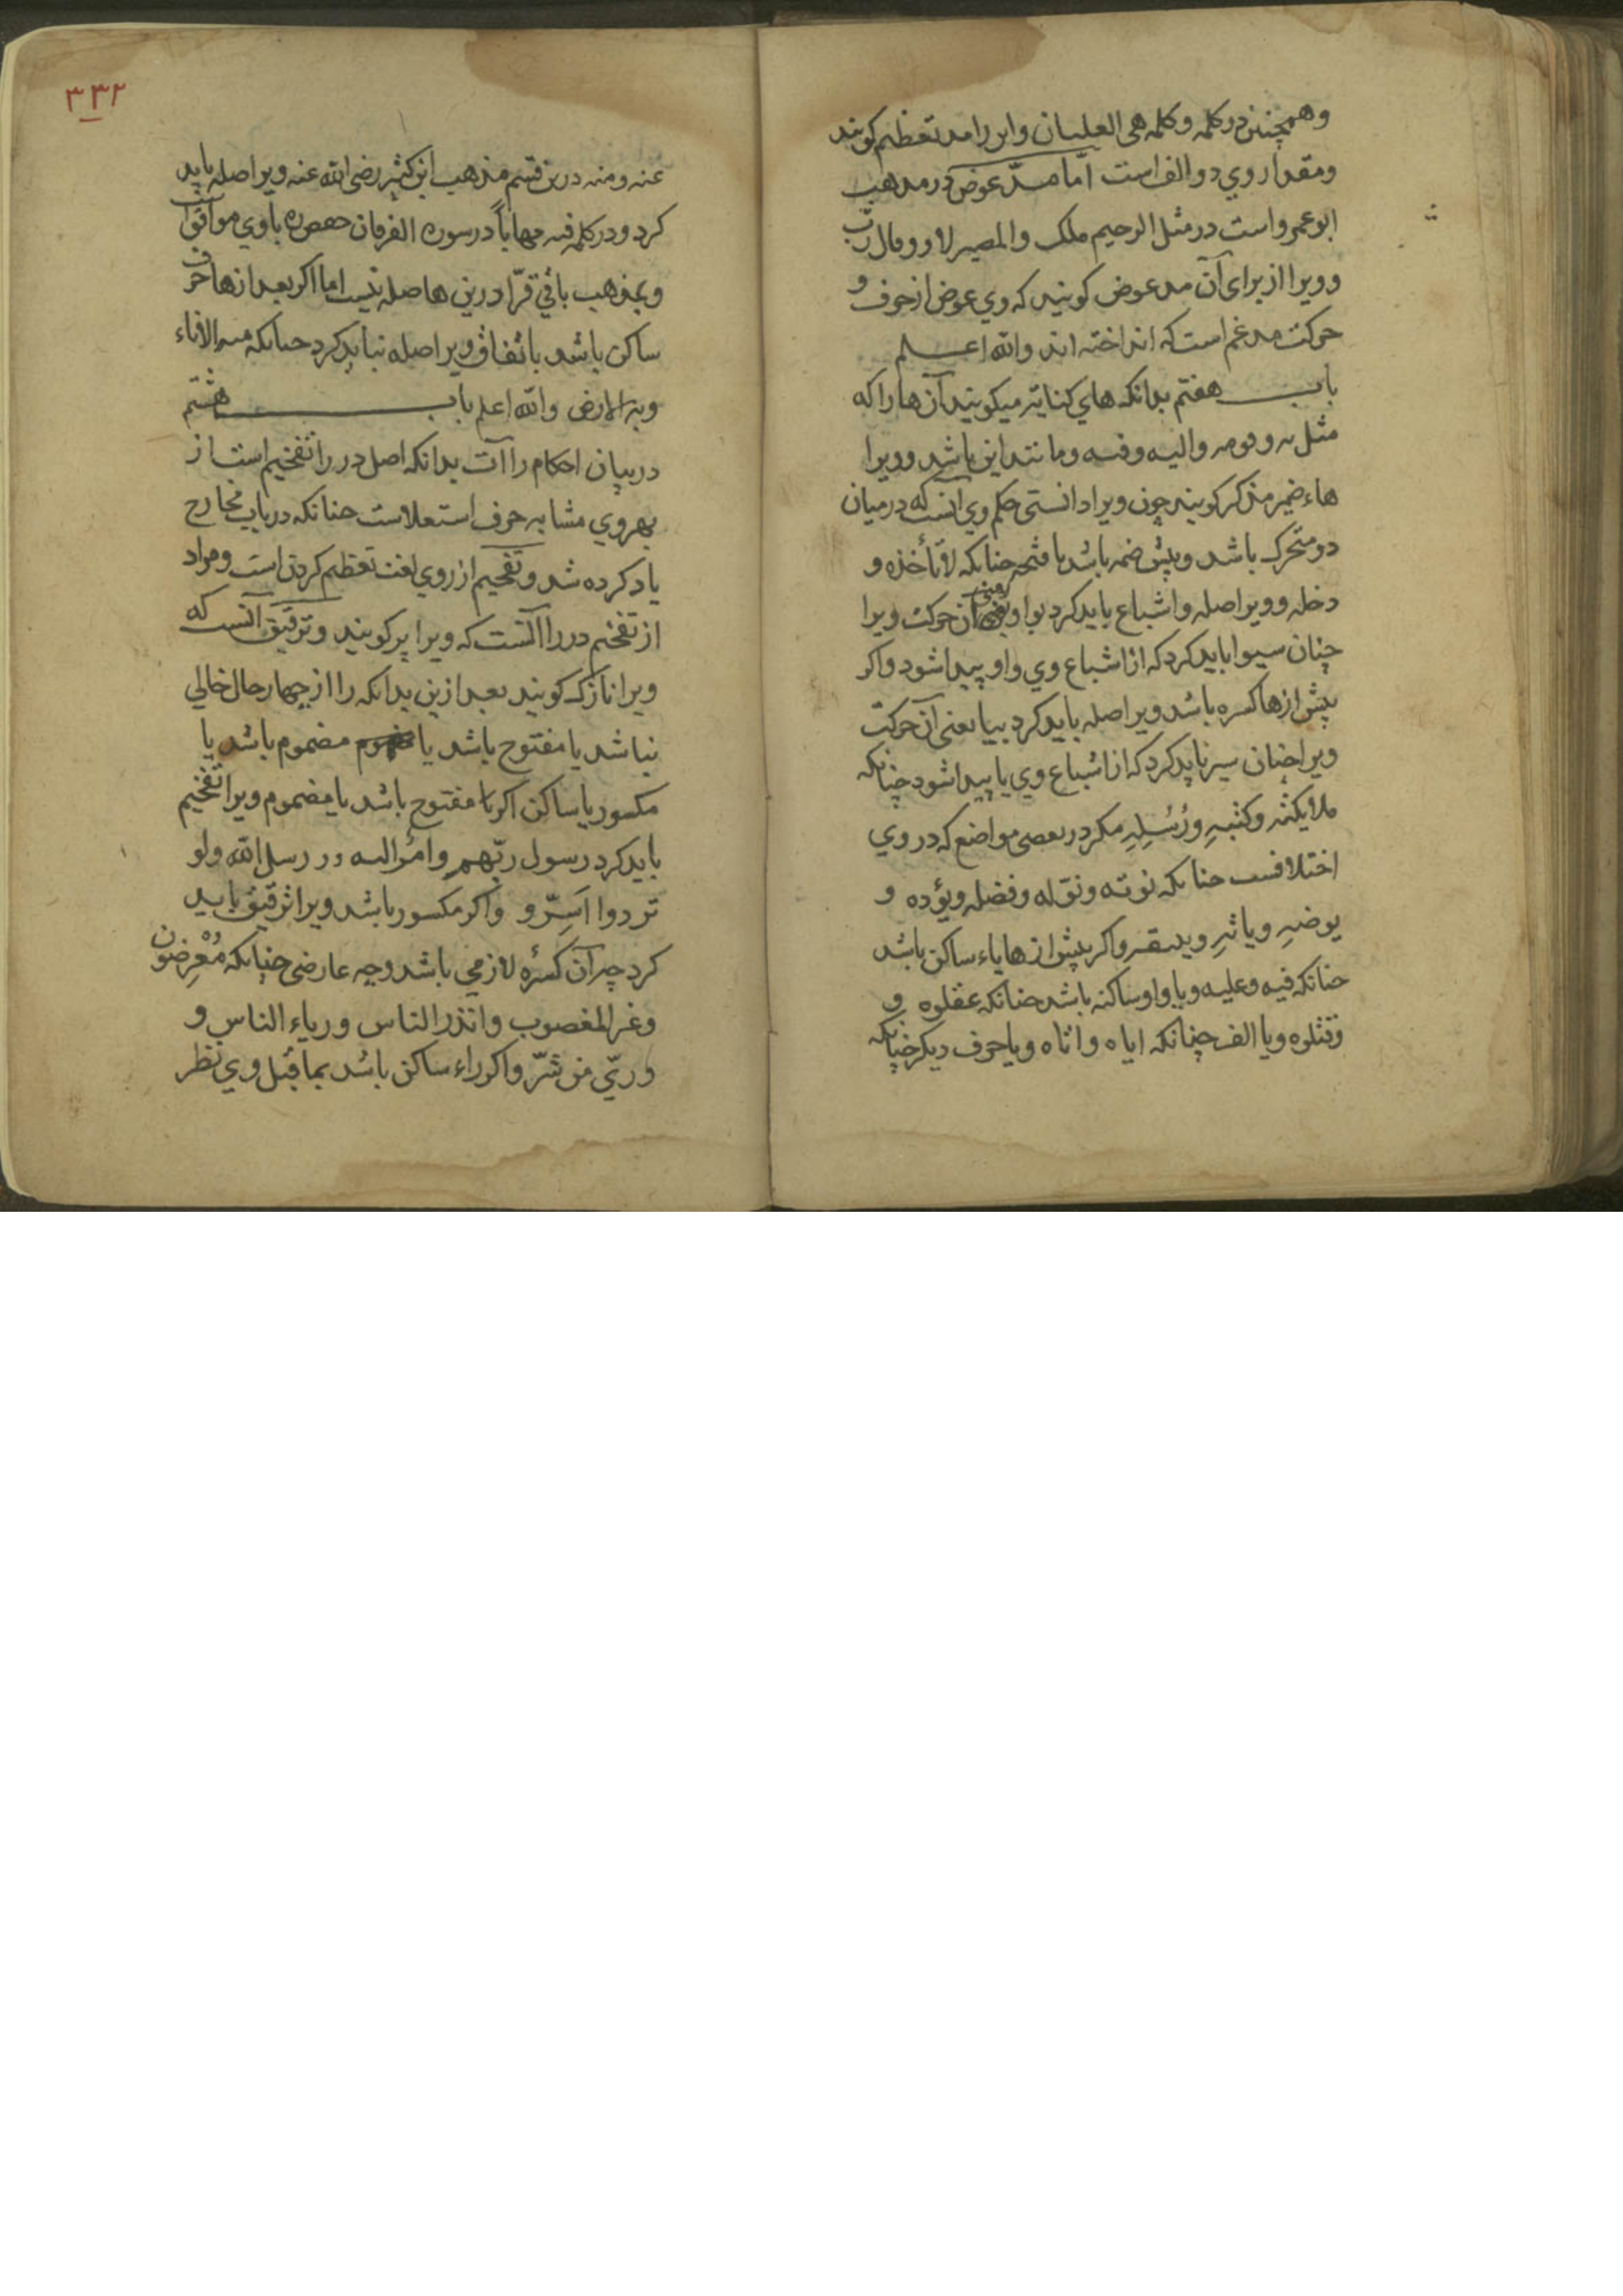 وهمچنین در کلمه وکلمه هی العلیان واین را مد تعظیم کویند
ومقدار وي دو الف است امّا مدّ عوض در مذهب
ابوعمرو است در مثل الرحیم ملك والمصیر لا وو قال ربّ
وویرا از برای آن مد عوض کویند که وي عوض از حرف و
حرکت مدغم است که انداخته اند والله اعلم
باب هفتم بدانکه هاي کنایة میکویند آن ها را که
مثل به و الیه و فیه و مانند این باشد وویرا
هاء ضمیر مذکر کویند چون ویرا دانستی حکم وي آنست که در میان
دو متحرک باشد وپیش ضمه باشد یا فتحه چنانکه لا تأخذه و
دخله وویرا صله واشباع باید کرد بواو یعنی آن حرکت ویرا
چنان سیرا باید کرد که از اشباع وي واو پیدا شود واکر
پیش از ها کسره باشد ویرا صله باید کرد بیا یعنی آن حرکت
ویرا چنان سیر باید کرد که از اشباع وي یا پیدا شود چنانکه
ملایکته وکتبهِ ورُسُلِهِ مکر در بعضی مواضع که در وي
اختلافست چنانکه نوته ونوّله وفضله ویؤده و
یرضهِ ویاتهِ ویتقه واکر پیش از ها یاء ساکن باشد
چنانکه فیه وعلیه ویا واو ساکنه باشد چنانکه عقلوه و
وقتلوه ویا الف چنانکه ایاه واتاه ویا حرف دیکر چنانکه
۳۳۲
عنه ومنه درین قسم مذهب ابن کثیر رضی الله عنه ویرا صله باید
کرد ودر کلمه فیه مهاناً در سوره الفرقان حفص ره باوي موافق است
وبمذهب باقي قرّا درین ها صله نیست اما اکر بعد از ها حرف
ساکن باشد باتفاق ویرا صله نباید کرد چنانکه منه الانهار
وبه الارض والله اعلم باب هشتم
در بیان احکام راآت بدانکه اصل در را تفخیم است از
بهر وي مشابه حروف استعلاست چنانکه در باب مخارج
یاد کرده شد وتفخیم از روي لغت تعظیم کردن است ومراد
از تفخیم در را آنست که ویرا پر کویند وترقیق آنست که
ویرا نازک کویند بعد ازین بدانکه را از چهار حال خالي
نباشد یا مفتوح باشد یا مضموم باشد یا
مکسور یا ساکن اکر را مفتوح باشد یا مضموم ویرا تفخیم
باید کرد رسول ربّهم وامرُ الیه رسل الله ولو
تردوا اَسِرّو واکر مکسور باشد ویرا ترقیق باید
کرد چه آن کسره لازمي باشد وچه عارضی چنانکه مُعْرِضُون
وغیر المغضوب وانذر الناس ورئاء الناس و
وربّي من شرّ واکر راء ساکن باشد بما قبل وي نظر